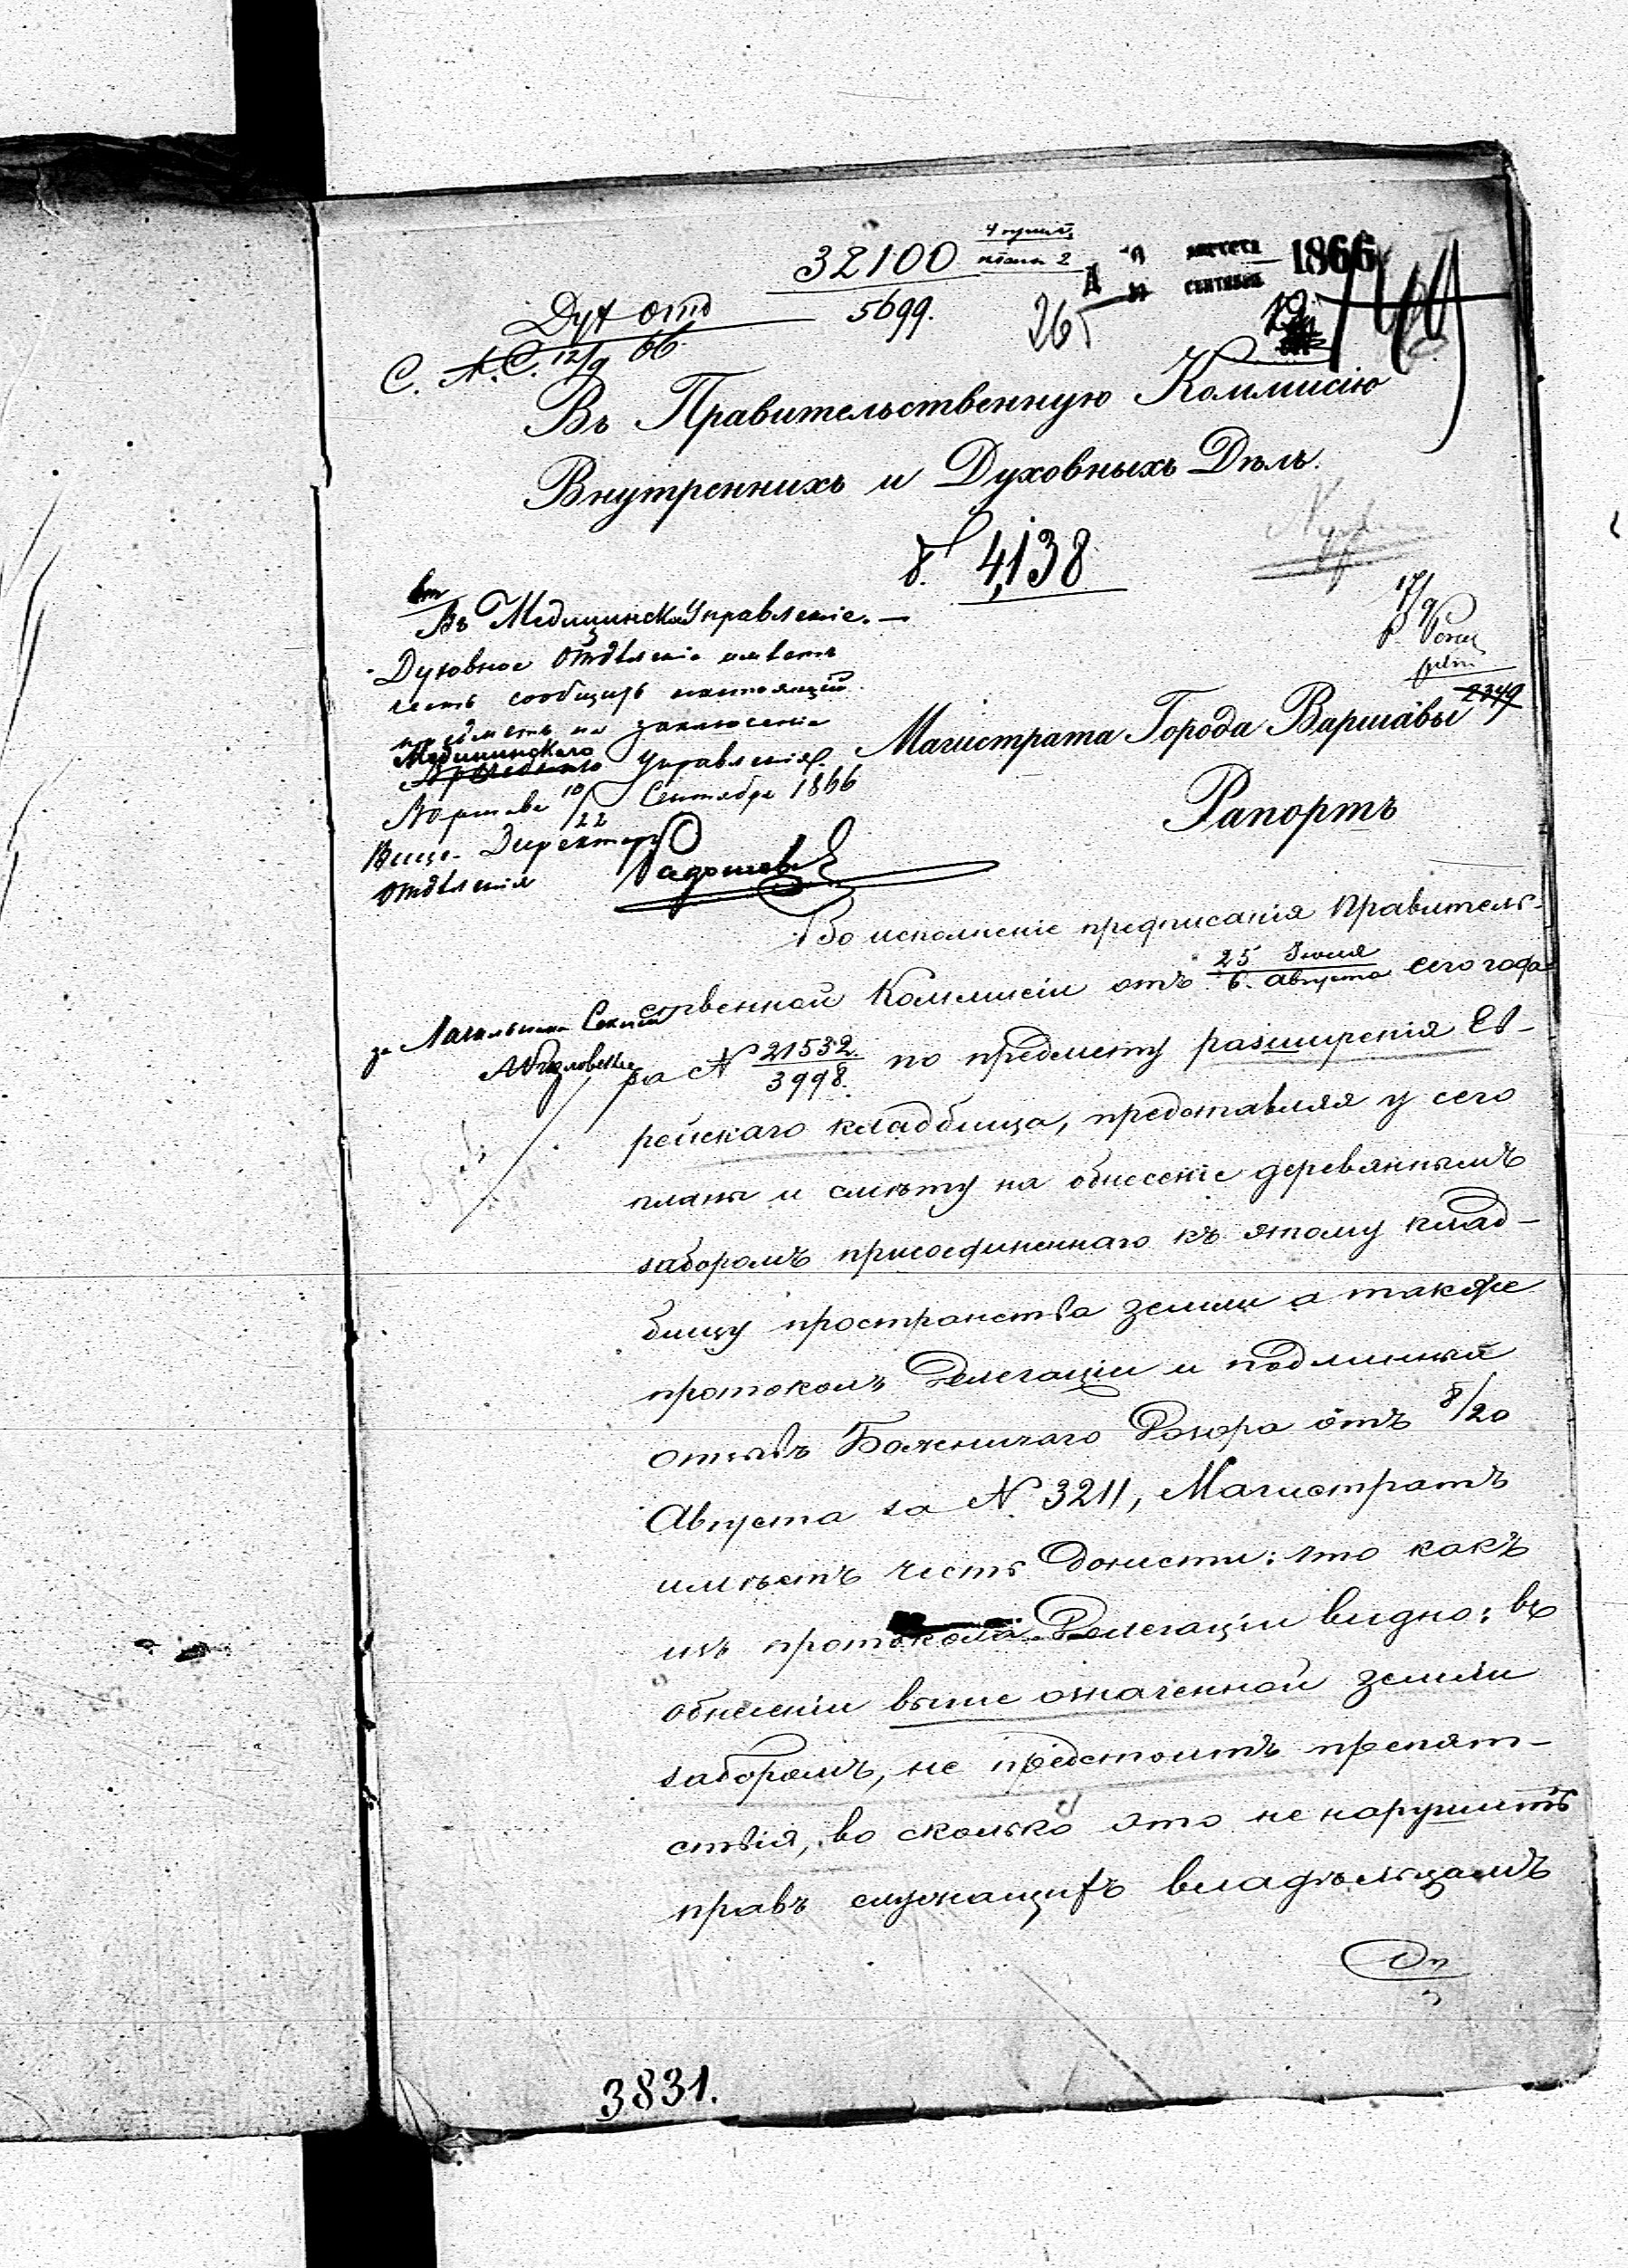 32100
5699.
Дух отд
С. А. С. 12/9 66
августа
сентября
1866
265
Въ Правительственную Коммисію
Внутреннихъ и Духовныхъ Дѣлъ.
4,138
17/9
2349
Въ Медицинское Управленіе. —
Духовное Отдѣленіе имѣетъ
честь сообщить настоящій
предметъ на заключеніе
Медицинскаго
Управленія.
Варшава 10/22 Сентября 1866
Вице-Директоръ
Отдѣленія
Магистрата Города Варшавы
Рапортъ
Во исполненіе предписанія Правитель-
ственной Коммисіи отъ 25 Іюля / 6 Августа сего года
за № 21532 / 3998 по предмету разширенія Ев-
за Начальника Секціи
рейскаго кладбища, представляя у сего
планъ и смѣту на обнесеніе деревяннымъ
заборомъ присоединеннаго къ этому клад-
бищу пространства земли а также
протоколъ Делегаціи и подлинный
отзывъ Боженичаго Дозора отъ 8/20
Августа за № 3211, Магистратъ
имѣетъ честь донести: что какъ
изъ протокола Делегаціи видно: въ
обнесеніи выше означенной земли
заборомъ, не предстоитъ препят-
ствія, во сколько это не нарушитъ
правъ служащихъ владѣльцамъ
3831.